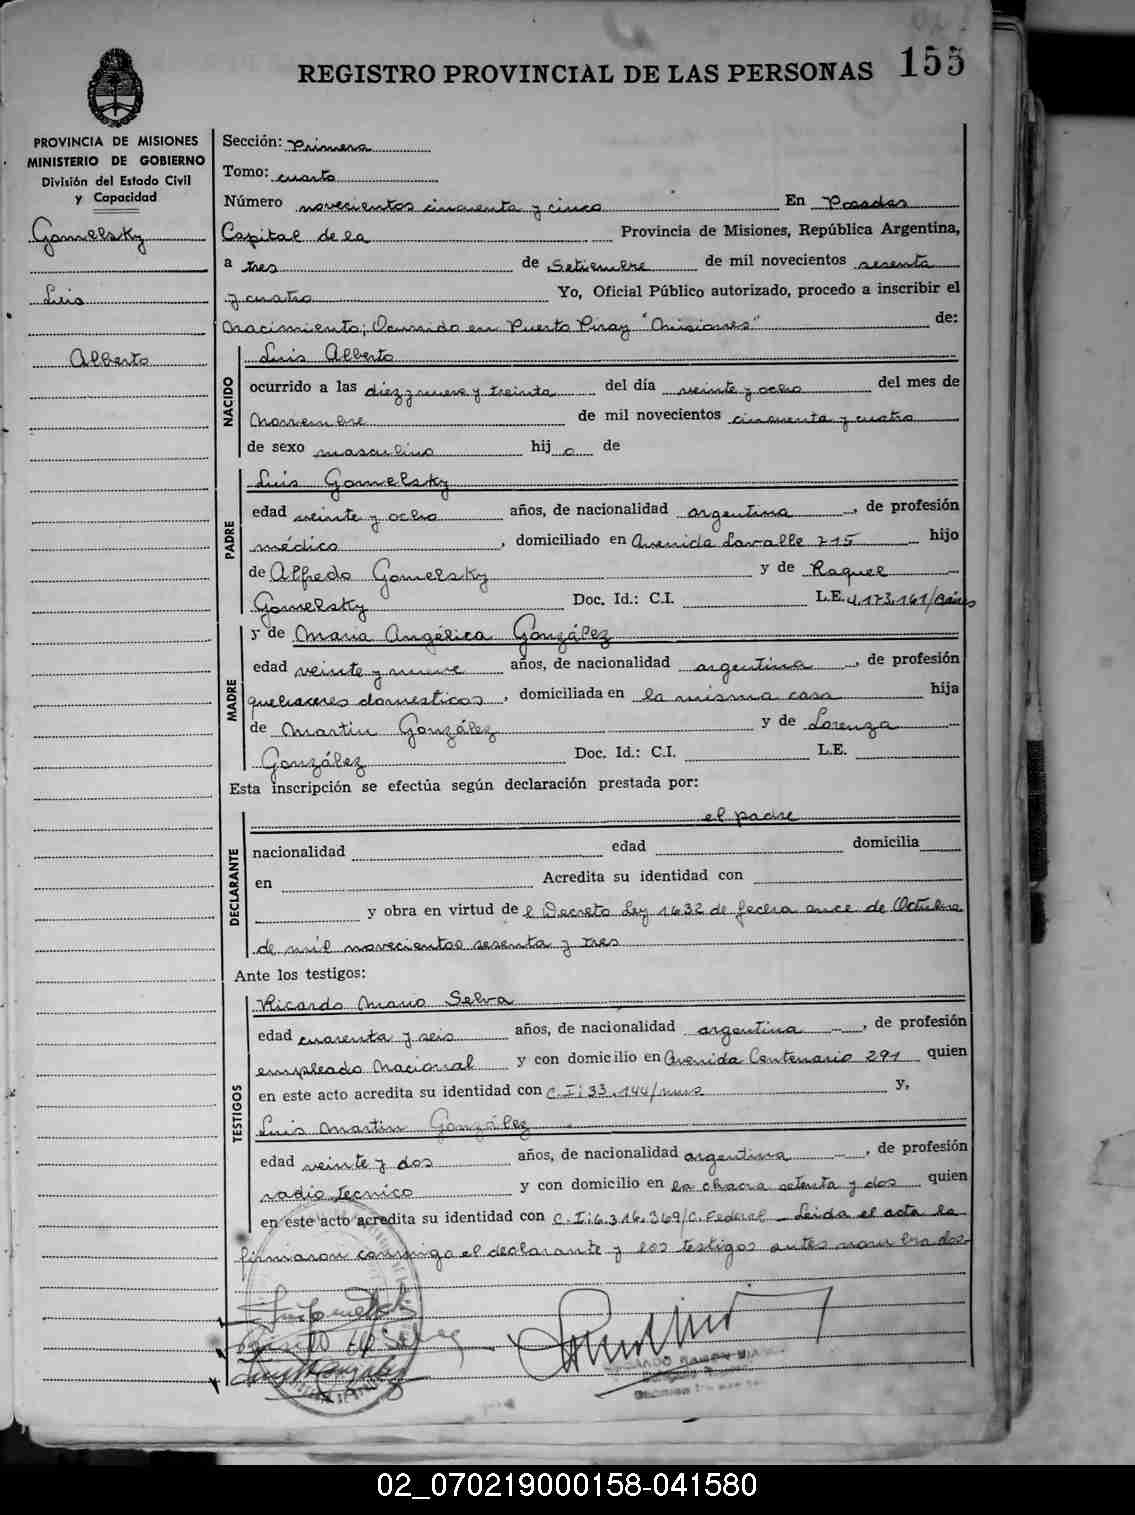 REGISTRO PROVINCIAL DE LAS PERSONAS 155
PROVINCIA DE MISIONES
MINISTERIO DE GOBIERNO
División del Estado Civil
y Capacidad
Gomelsky
Luis
Alberto
Sección: Primera
Tomo: cuarto
Número novecientos cincuenta y cinco En Posadas
Capital de la Provincia de Misiones, República Argentina,
a tres de Setiembre de mil novecientos sesenta
y cuatro Yo, Oficial Público autorizado, procedo a inscribir el
Nacimiento; Ocurrido en Puerto Piray "Misiones" de:
NACIDO
Luis Alberto
ocurrido a las diez y nueve y treinta del día veinte y ocho del mes de
Noviembre de mil novecientos cincuenta y cuatro
de sexo masculino hijo de
PADRE
Luis Gomelsky
edad veinte y ocho años, de nacionalidad argentina, de profesión
médico, domiciliado en Avenida Lavalle 215 hijo
de Alfredo Gomelsky y de Raquel
Gomelsky Doc. Id.: C.I. L.E. 4.173.161/
MADRE
y de Maria Angélica González
edad veinte y nueve años, de nacionalidad argentina, de profesión
quehaceres domesticos, domiciliada en la misma casa hija
de Martin González y de Lorenza
González Doc. Id.: C.I. L.E.
Esta inscripción se efectúa según declaración prestada por:
DECLARANTE
el padre
nacionalidad edad domicilia
en Acredita su identidad con
y obra en virtud de el Decreto Ley 1632 de fecha once de Octubre
de mil novecientos sesenta y tres
Ante los testigos:
TESTIGOS
Ricardo Mario Selva
edad cuarenta y seis años, de nacionalidad argentina, de profesión
empleado Nacional y con domicilio en Avenida Centenario 291 quien
en este acto acredita su identidad con C.I: 33.144/ y,
Luis Martin González
edad veinte y dos años, de nacionalidad argentina, de profesión
radio tecnico y con domicilio en la chacra setenta y dos quien
en este acto acredita su identidad con C.I: 6.316.369/C. Federal - Leida el acta la
firmaron conmigo el declarante y los testigos antes nombrados-
02_070219000158-041580